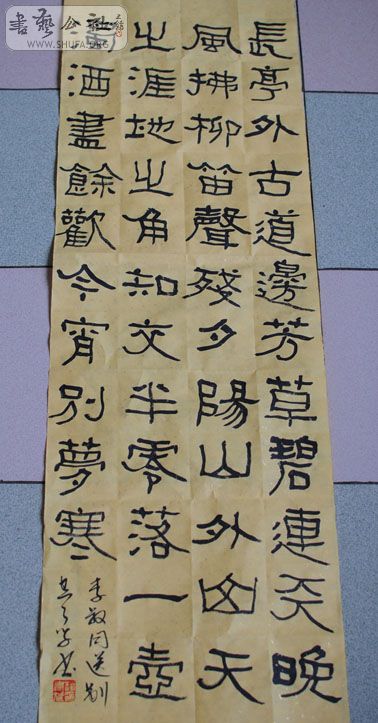 長亭外古道邊芳草碧連天晚
風拂柳笛聲殘夕陽山外山天
之涯地之角知交半零落一壺
濁酒盡餘歡今宵別夢寒
李叔同送别
書藝公社
WWW.SHUFA.ORG